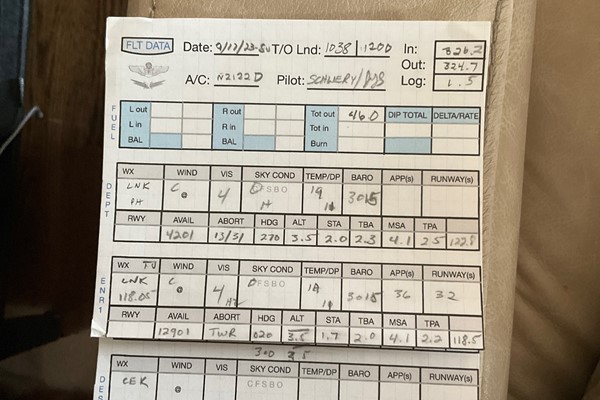 FLT DATA Date: 9/17/23-SU T/O Lnd: 1038 / 1200 In: 326.2
Out: 324.7
A/C: N2122D Pilot: SCHWERY/ Log: 1.5
FUEL
L out R out Tot out 46.0 DIP TOTAL DELTA/RATE
L in R in Tot in
BAL BAL Burn
DEPT
WX WIND VIS SKY COND TEMP/DP BARO APP(s) RUNWAY(s)
LNK C 4 CFSBO 19 3015
PH H
RWY AVAIL ABORT HDG ALT STA TBA MSA TPA
4201 13/31 270 3.5 2.0 2.3 4.1 2.5 122.8
ENR1
WX WIND VIS SKY COND TEMP/DP BARO APP(s) RUNWAY(s)
LNK C 4 CFSBO 19 3015 36 32
118.05 HZ
RWY AVAIL ABORT HDG ALT STA TBA MSA TPA
12901 TWR 020 3.5 1.7 2.0 4.1 2.2 118.5
300 2.5
DES
WX WIND VIS SKY COND TEMP/DP BARO APP(s) RUNWAY(s)
CEK CFSBO